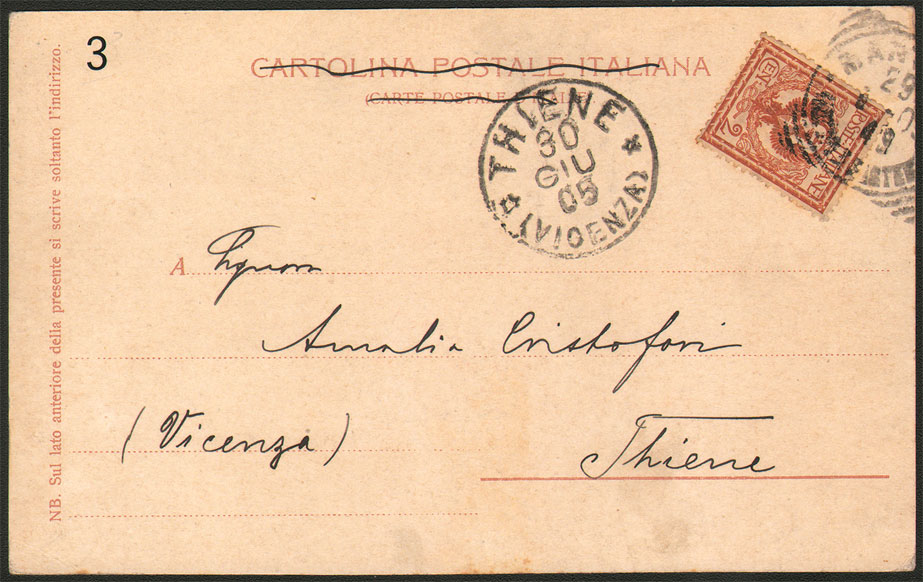 3
CARTOLINA POSTALE ITALIANA
(CARTE POSTALE ITALIENNE)
NB. Sul lato anteriore della presente si scrive soltanto l'indirizzo.
THIENE
30
GIU
05
(VICENZA)
CEN 2
POSTE ITALIANE
MAN
29
A Signora
Amalia Cristofori
(Vicenza)
Thiene